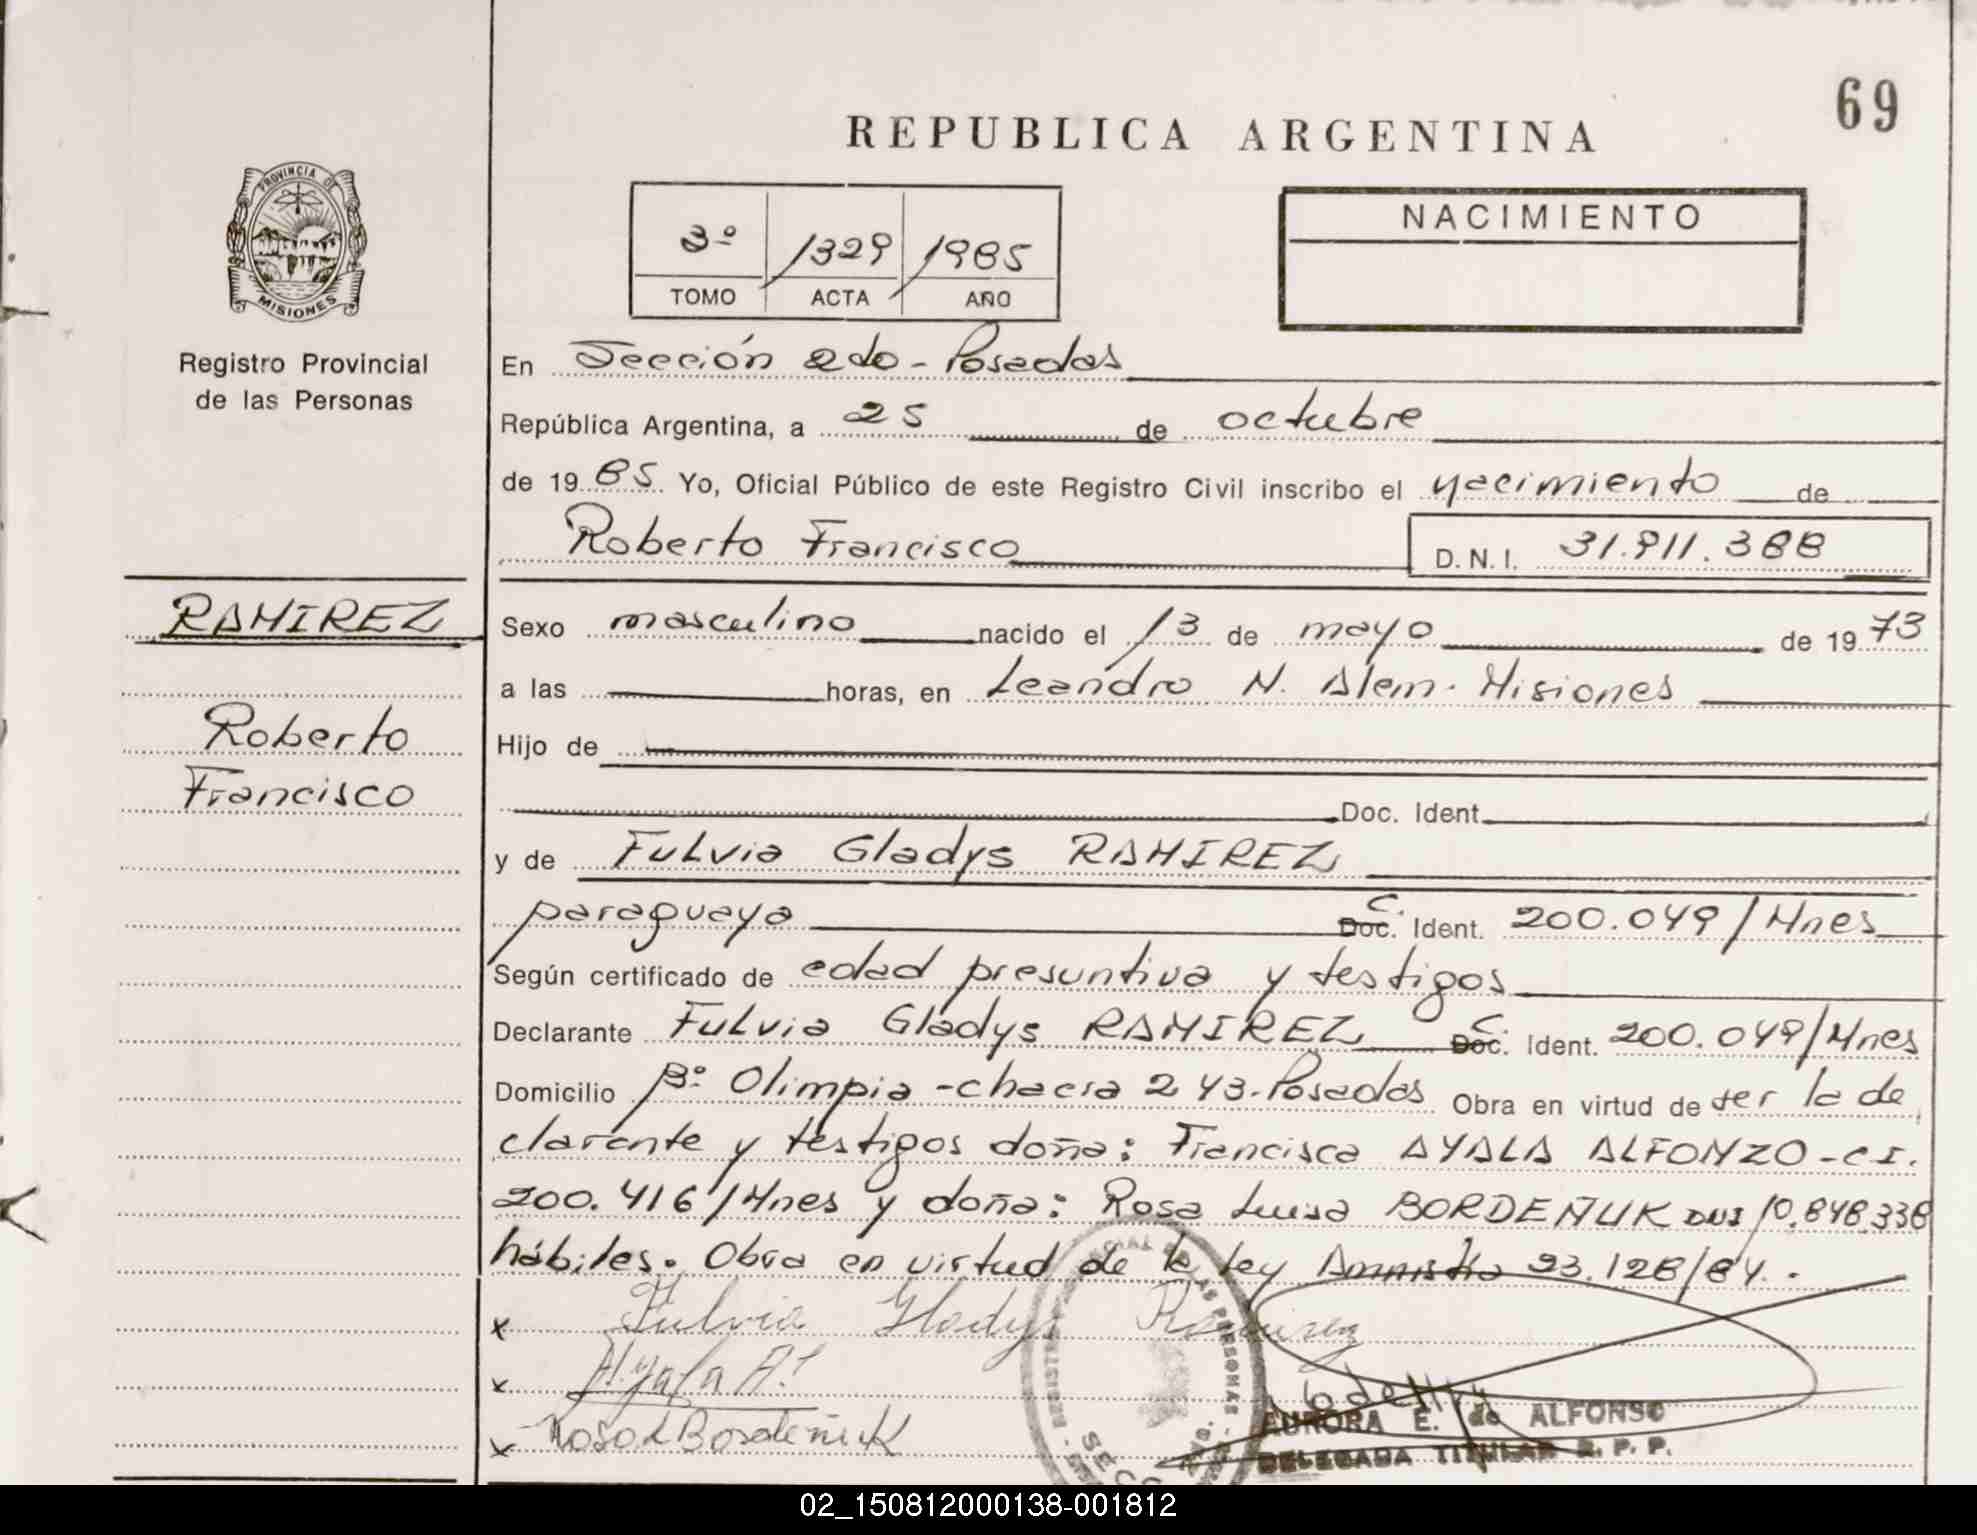 69
REPUBLICA ARGENTINA
PROVINCIA DE
MISIONES
3º 1329 1985
TOMO ACTA AÑO
NACIMIENTO
Registro Provincial
de las Personas
En Sección 2do - Posadas
República Argentina, a 25 de octubre
de 1985 Yo, Oficial Público de este Registro Civil inscribo el nacimiento de
Roberto Francisco D. N. I. 31.911.388
RAMIREZ
Roberto
Francisco
Sexo masculino nacido el 13 de mayo de 1973
a las horas, en Leandro N. Alem - Misiones
Hijo de
Doc. Ident.
y de Fulvia Gladys RAMIREZ
paraguaya C. Doc. Ident. 200.049/Mnes
Según certificado de edad presuntiva y testigos
Declarante Fulvia Gladys RAMIREZ C. Doc. Ident. 200.049/Mnes
Domicilio Bº Olimpia - chacra 243 - Posadas Obra en virtud de ser la de
clarante y testigos doña: Francisca AYALA ALFONZO - C I.
200.416/Mnes y doña: Rosa Luisa BORDEÑUK DNI 10.848.338
hábiles. Obra en virtud de la ley Amnistía 23.128/84.
x Fulvia Gladys Ramirez
x Ayala A.
x Rosa L Bordeñuk
AURORA E. de ALFONSO
DELEGADA TITULAR R. P. P.
02_150812000138-001812